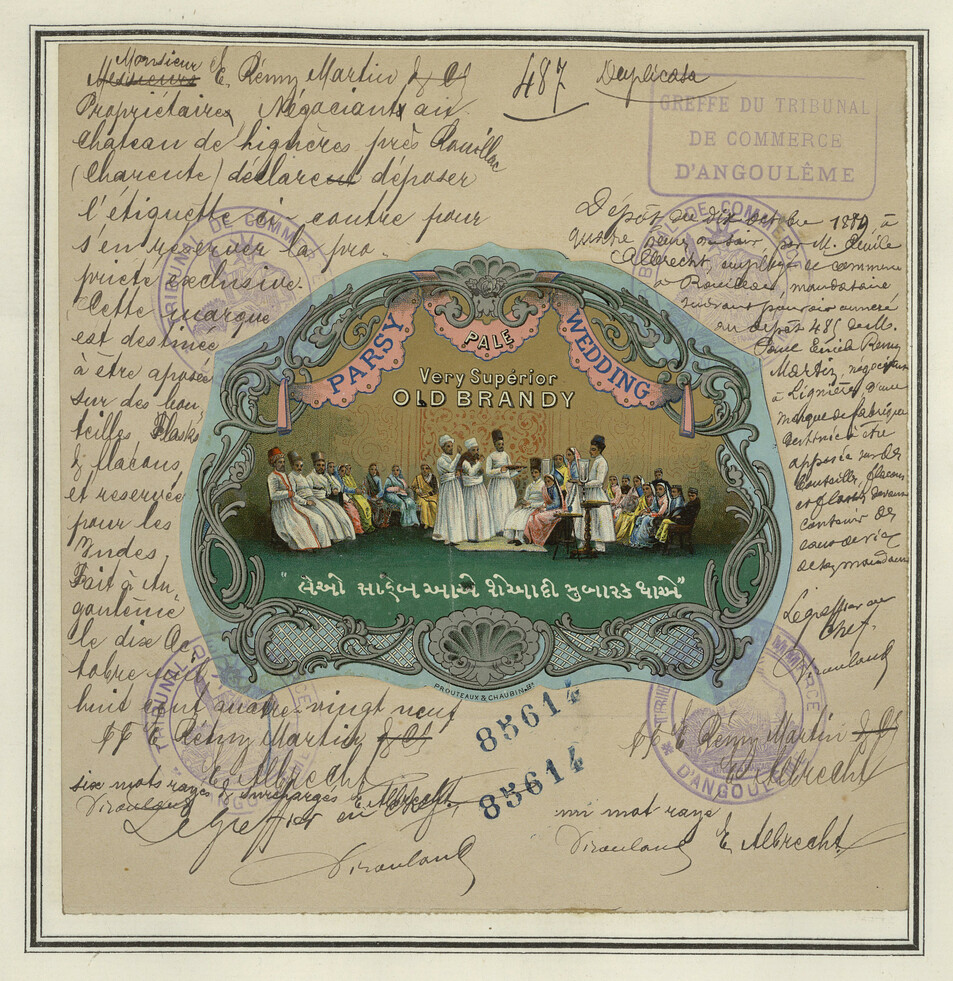 Monsieur
Messieurs E. Rémy Martin & Cº
Propriétaires Négociants au
chateau de Lignères près Rouillac
(Charente) déclarent déposer
l'étiquette ci-contre pour
s'en réserver la pro-
priété exclusive.
Cette marque
est destinée
à être aposée
sur des bou
teilles, flasks
& flacons,
et reservée
pour les
Indes,
Fait à An
goulême
le dix Oc
tobre mil
huit cent quatre-vingt neuf
E. Rémy Martin & Cº
E. Albrecht
six mots rayés & surchargés E. Albrecht
Le Greffier en Chef,
487 Duplicata
GREFFE DU TRIBUNAL
DE COMMERCE
D'ANGOULÊME
Dépôt du dix octobre 1889, à
quatre heures du soir, par M. Emile
Albrecht employé de commerce
à Rouillac, mandataire
suivant pouvoir annexé
au dépôt 485 de M.
Paul Emile Remy
Martin, négociant
à Lignières d'une
marque de fabrique
destinée à être
apposée sur des
bouteilles, flacons
et flasks, devant
contenir des
eaux de vie
de son mandant
Le greffier en
Chef.
E. Rémy Martin & Cº
E. Albrecht
un mot rayé
E. Albrecht
TRIBUNAL DE COMMERCE
D'ANGOULÊME
PARSY PALE WEDDING
Very Supérior
OLD BRANDY
"લેઓ સાહેબ આએ શેઆદી મુબારક થાએ"
PROUTEAUX & CHAUBIN
85614
85614